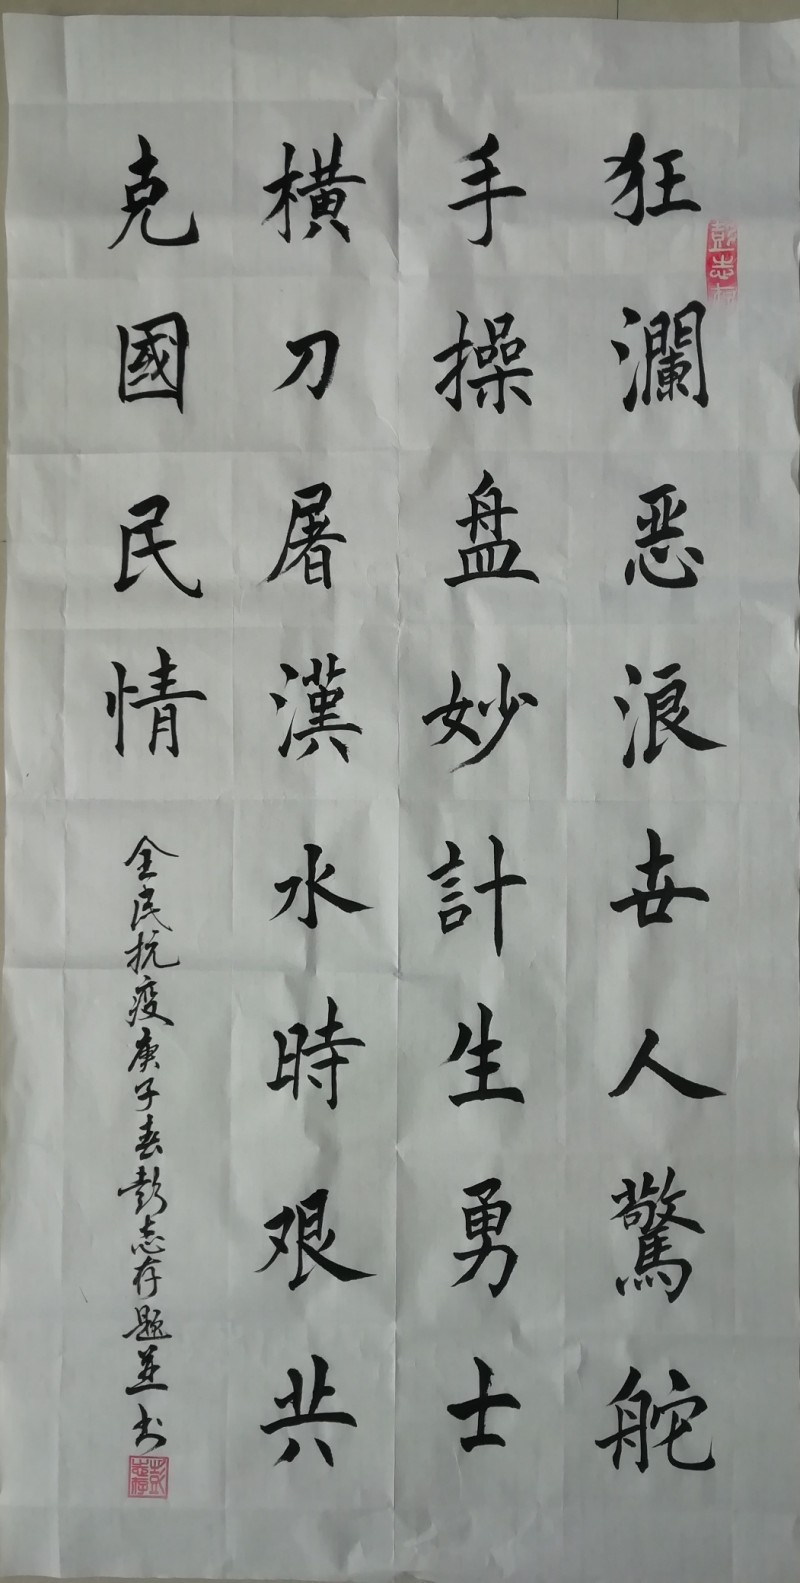 狂瀾恶浪世人驚舵
手操盘妙計生勇士
橫刀屠漢水時艰共
克國民情
全民抗疫庚子春彭志存题並书
彭志存
彭志存